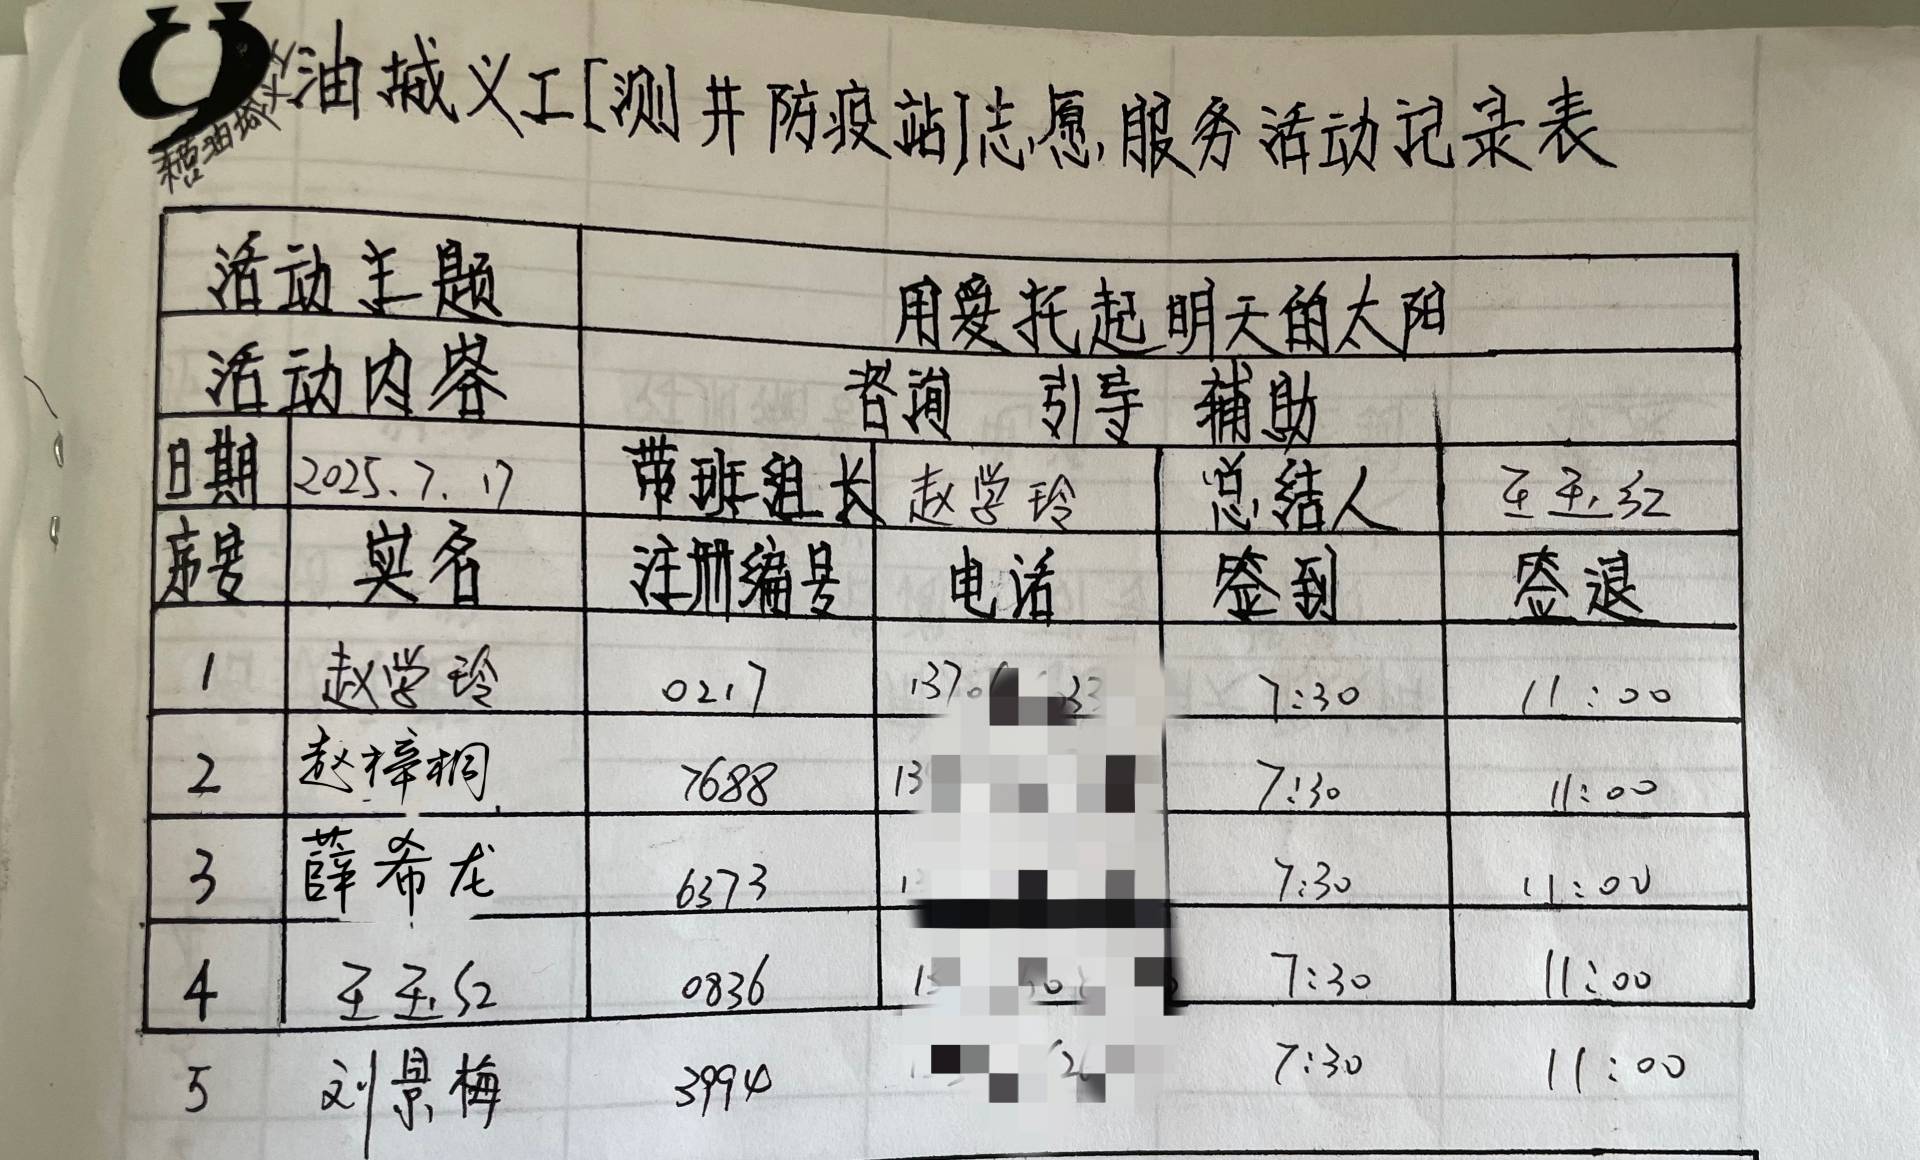 油城义工[测井防疫站]志愿服务活动记录表
活动主题 用爱托起明天的太阳
活动内容 咨询 引导 辅助
日期 2025.7.17 带班组长 赵学玲 总结人 王玉红
序号 实名 注册编号 电话 签到 签退
1 赵学玲 0217 1370 33 7:30 11:00
2 赵梓桐 7688 13 7:30 11:00
3 薛希龙 6373 7:30 11:00
4 王玉红 0836 15 7:30 11:00
5 刘景梅 3994 7:30 11:00